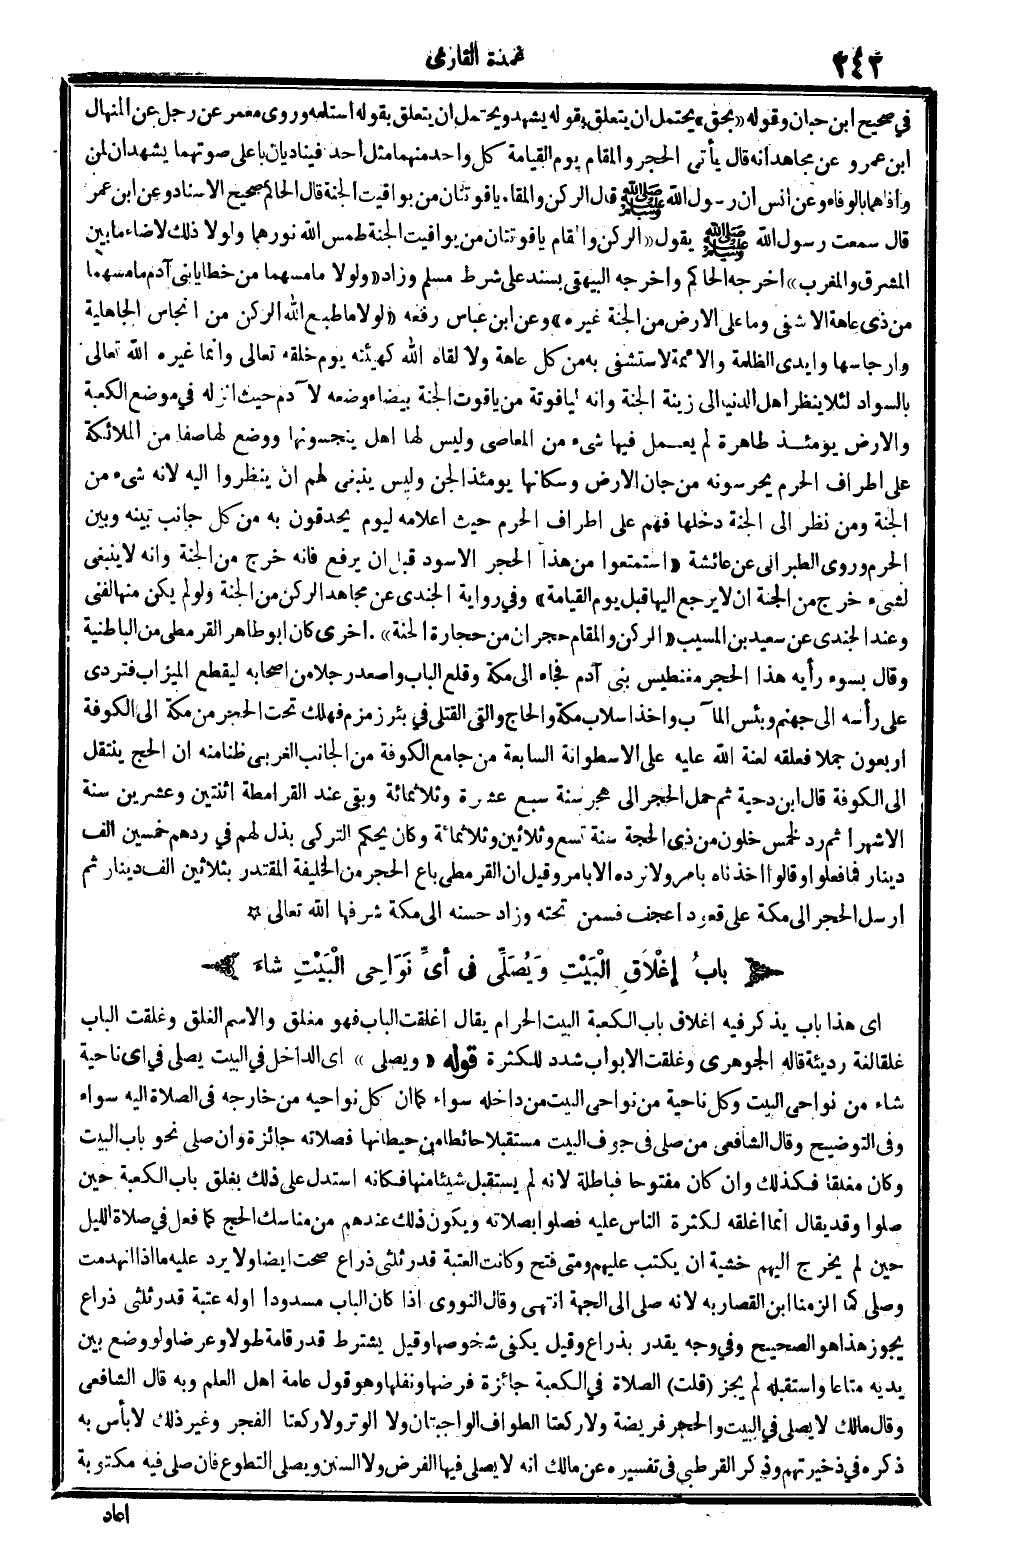 ٢٤٢
عمدة القارى
في صحيح ابن حبان وقوله «بحق» يحتمل ان يتعلق بقوله يشهد ويحتمل ان يتعلق بقوله استلمه وروى معمر عن رجل عن المنهال
ابن عمرو عن مجاهد انه قال يأتى الحجر والمقام يوم القيامة كل واحد منهما مثل احد فيناديان باعلى صوتهما يشهدان لمن
وافاهما بالوفاء وعن انس ان رسول الله ﷺ قال الركن والمقام ياقوتتان من يواقيت الجنة قال الحاكم صحيح الاسناد وعن ابن عمر
قال سمعت رسول الله ﷺ يقول «الركن والمقام ياقوتتان من يواقيت الجنة طمس الله نورهما ولولا ذلك لاضاء ما بين
المشرق والمغرب» اخرجه الحاكم واخرجه البيهقى بسند على شرط مسلم وزاد «ولولا ما مسهما من خطايا بنى آدم ما مسهما
من ذى عاهة الا شفى وما على الارض من الجنة غيره» وعن ابن عباس رفعه «لولا ما طبع الله الركن من انجاس الجاهلية
وارجاسها وايدى الظلمة والاثمة لاستشفى به من كل عاهة ولا لقاه الله كهيئته يوم خلقه تعالى وانما غيره الله تعالى
بالسواد لئلا ينظر اهل الدنيا الى زينة الجنة وانه لياقوتة من ياقوت الجنة بيضاء وضعه لآدم حيث انزله في موضع الكعبة
والارض يومئذ طاهرة لم يعمل فيها شىء من المعاصى وليس لها اهل ينجسونها ووضع لها صفا من الملائكة
على اطراف الحرم يحرسونه من جان الارض وسكانها يومئذ الجن وليس ينبغى لهم ان ينظروا اليه لانه شىء من
الجنة ومن نظر الى الجنة دخلها فهم على اطراف الحرم حيث اعلامه ليوم يحدقون به من كل جانب بينه وبين
الحرم وروى الطبرانى عن عائشة «استمتعوا من هذا الحجر الاسود قبل ان يرفع فانه خرج من الجنة وانه لا ينبغى
لشىء خرج من الجنة ان لا يرجع اليها قبل يوم القيامة» وفي رواية الجندى عن مجاهد الركن من الجنة ولو لم يكن منها لفنى
وعند الجندى عن سعيد بن المسيب «الركن والمقام حجران من حجارة الجنة». اخرى كان ابو طاهر القرمطى من الباطنية
وقال بسوء رأيه هذا الحجر مغنطيس بنى آدم فجاء الى مكة وقلع الباب واصعد رجلا من اصحابه ليقطع الميزاب فتردى
على رأسه الى جهنم وبئس المآب واخذ اسلاب مكة والحاج والقى القتلى في بئر زمزم فهلك تحت الحجر من مكة الى الكوفة
اربعون جملا فعلقه لعنة الله عليه على الاسطوانة السابعة من جامع الكوفة من الجانب الغربى ظنا منه ان الحج ينتقل
الى الكوفة قال ابن دحية ثم حمل الحجر الى هجر سنة سبع عشرة وثلاثمائة وبقى عند القرامطة اثنتين وعشرين سنة
الا شهرا ثم رد لخمس خلون من ذى الحجة سنة تسع وثلاثين وثلاثمائة وكان يحكم التركى بذل لهم في ردهم خمسين الف
دينار فما فعلوا وقالوا اخذناه بامر ولا نرده الا بامر وقيل ان القرمطى باع الحجر من الخليفة المقتدر بثلاثين الف دينار ثم
ارسل الحجر الى مكة على قعود اعجف فسمن تحته وزاد حسنه الى مكة شرفها الله تعالى ☆
بابُ إغْلَاقِ الْبَيْتِ وَيُصَلِّى فى أىِّ نَوَاحِى الْبَيْتِ شاءَ
اى هذا باب يذكر فيه اغلاق باب الكعبة البيت الحرام يقال اغلقت الباب فهو مغلق والاسم الغلق وغلقت الباب
غلقا لغة رديئة قاله الجوهرى وغلقت الابواب شدد للكثرة قوله «ويصلى» اى الداخل في البيت يصلى في اى ناحية
شاء من نواحى البيت وكل ناحية من نواحى البيت من داخله سواء كما ان كل نواحيه من خارجه فى الصلاة اليه سواء
وفى التوضيح وقال الشافعى من صلى فى جوف البيت مستقبلا حائطا من حيطانها فصلاته جائزة وان صلى نحو باب البيت
وكان مغلقا فكذلك وان كان مفتوحا فباطلة لانه لم يستقبل شيئا منها فكانه استدل على ذلك بغلق باب الكعبة حين
صلوا وقد يقال انما اغلقه لكثرة الناس عليه فصلوا بصلاته ويكون ذلك عندهم من مناسك الحج كما فعل في صلاة الليل
حين لم يخرج اليهم خشية ان يكتب عليهم ومتى فتح وكانت العتبة قدر ثلثى ذراع صحت ايضا ولا يرد عليه ما اذا انهدمت
وصلى كما الزمنا ابن القصار به لانه صلى الى الجهة انتهى وقال النووى اذا كان الباب مسدودا اوله عتبة قدر ثلثى ذراع
يجوز هذا هو الصحيح وفي وجه يقدر بذراع وقيل يكفى شخوصها وقيل يشترط قدر قامة طولا وعرضا ولو وضع بين
يديه متاعا واستقبله لم يجز (قلت) الصلاة في الكعبة جائزة فرضها ونفلها وهو قول عامة اهل العلم وبه قال الشافعى
وقال مالك لا يصلى في البيت والحجر فريضة ولا ركعتا الطواف الواجبتان ولا الوتر ولا ركعتا الفجر وغير ذلك لا بأس به
ذكره في ذخيرتهم وذكر القرطبى فى تفسيره عن مالك انه لا يصلى فيها الفرض ولا السنن ويصلى التطوع فان صلى فيه مكتوبة
اعاد